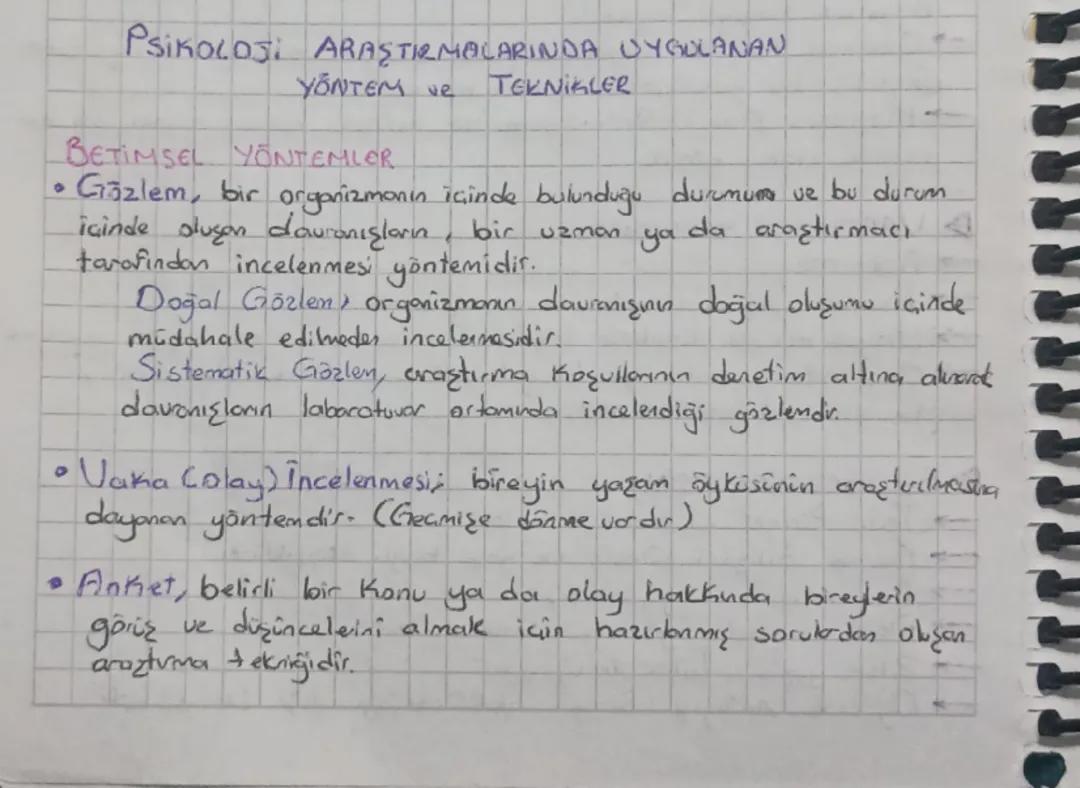 PSİKOLOJİ ARAŞTIRMALARINDA UYGULANAN
YÖNTEM ve TEKNİKLER
BETİMSEL YÖNTEMLER
• Gözlem, bir organizmanın içinde bulunduğu durumun ve bu durum
içinde oluşan davranışların, bir uzman ya da araştırmacı
tarafından incelenmesi yöntemidir.
Doğal Gözlem, organizmanın davranışının doğal oluşumu içinde
müdahale edilmeden incelenmesidir.
Sistematik Gözlem, araştırma koşullarının denetim altına alınarak
davranışların laboratuvar ortamında incelendiği gözlemdir.
• Vaka (olay) İncelenmesi; bireyin yaşam öyküsünün araştırılmasına
dayanan yöntemdir. (Geçmişe dönme vardır)
• Anket, belirli bir konu ya da olay hakkında bireylerin
görüş ve düşüncelerini almak için hazırlanmış sorulardan oluşan
araştırma tekniğidir.